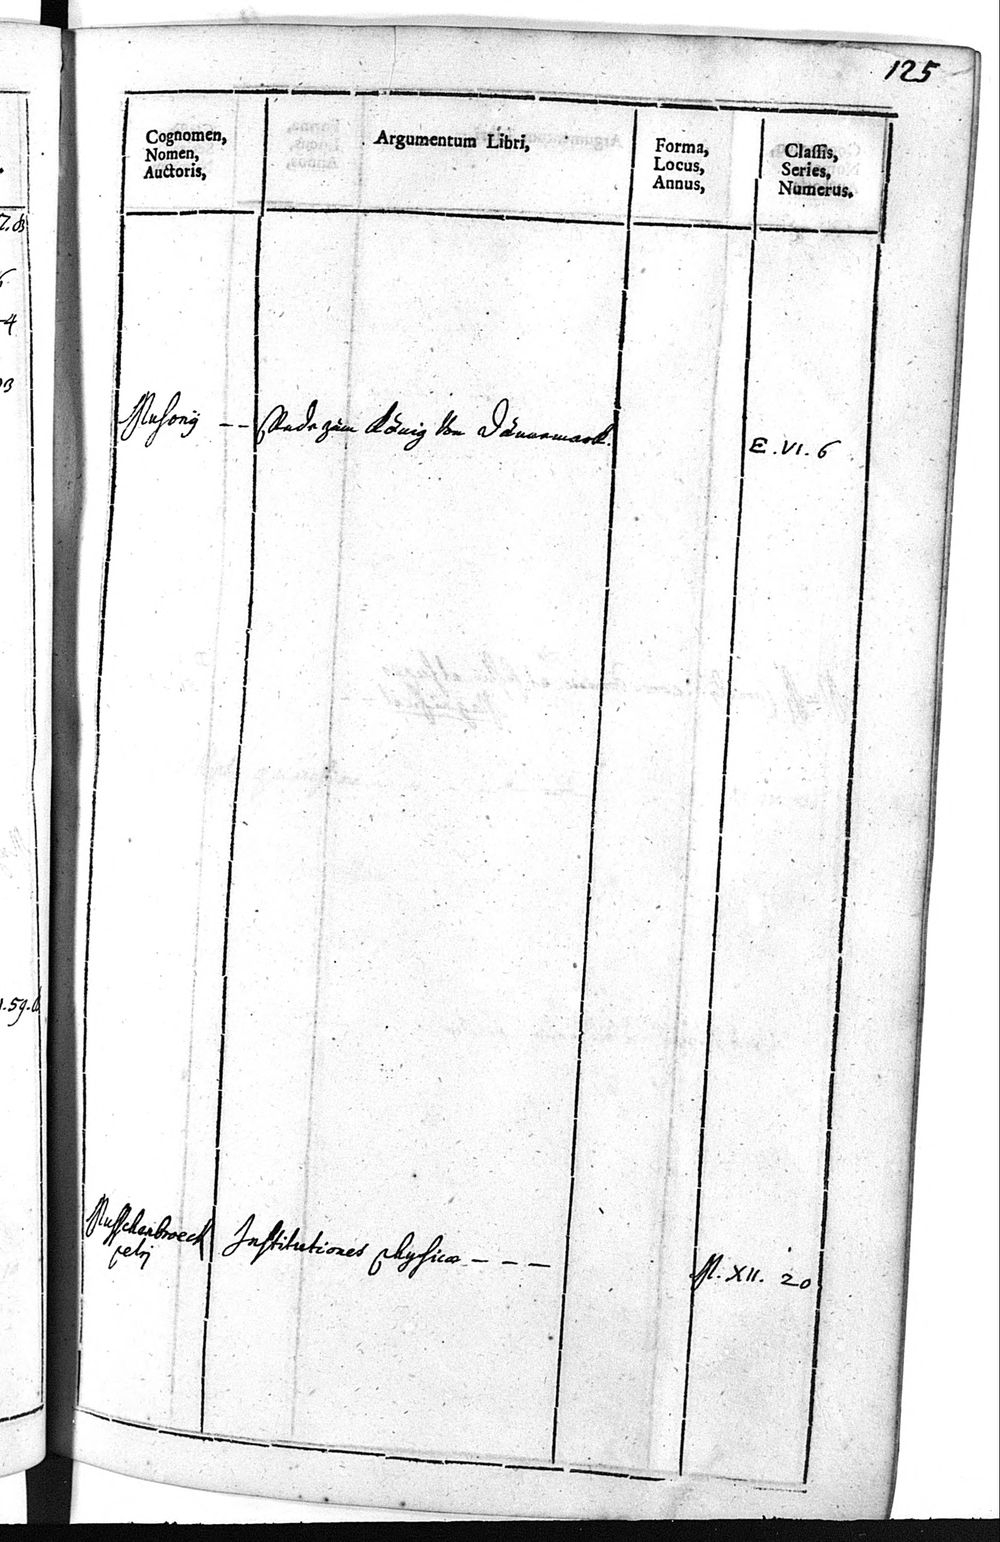 125
Cognomen,
Nomen,
Auctoris,
Argumentum Libri,
Forma,
Locus,
Annus,
Classis,
Series,
Numerus.
Musonij -- Rede zum König von Dännemark.
E. VI. 6
Musschenbroeck
petrj
Institutiones physicæ - - -
M. XII. 20
7.
4
1.59.